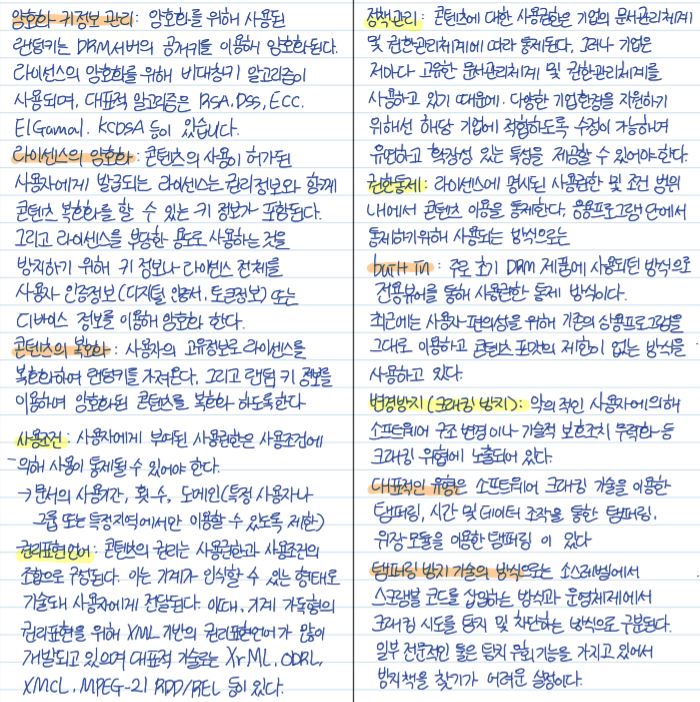 암호화 키정보 관리 : 암호화를 위해 사용된
랜덤키는 DRM서버의 공개키를 이용해 암호화된다.
라이센스의 암호화를 위해 비대칭키 알고리즘이
사용되며, 대표적 알고리즘은 RSA, DSS, ECC.
ElGamal. KCDSA 등이 있습니다.
라이센스의 암호화 : 콘텐츠의 사용이 허가된
사용자에게 발급되는 라이센스는 권리정보와 함께
콘텐츠 복호화를 할 수 있는 키 정보가 포함된다.
그리고 라이센스를 부당한 용도로 사용하는 것을
방지하기 위해 키 정보나 라이센스 전체를
사용자 인증정보(디지털 인증서, 토큰정보) 또는
디바이스 정보를 이용해 암호화 한다.
콘텐츠의 복호화 : 사용자의 고유정보로 라이센스를
복호화하여 랜덤키를 가져온다. 그리고 랜덤 키 정보를
이용하여 암호화된 콘텐츠를 복호화 하도록한다
사용조건 : 사용자에게 부여된 사용권한은 사용조건에
의해 사용이 통제될 수 있어야 한다.
→ 문서의 사용기간, 횟수, 도메인(특정 사용자나
그룹 또는 특정지역에서만 이용할 수 있도록 제한)
권리표현언어 : 콘텐츠의 권리는 사용권한과 사용조건의
조합으로 구성된다. 이는 기계가 인식할 수 있는 형태로
기술돼 사용자에게 전달된다. 이때, 기계 가독형의
권리표현을 위해 XML 기반의 권리표현언어가 많이
개발되고 있으며 대표적 기술로는 XrML, ODRL,
XMCL, MPEG-21 RDD/REL 등이 있다.
정책관리 : 콘텐츠에 대한 사용권한은 기업의 문서관리체계
및 권한관리체계에 따라 통제된다. 그러나 기업은
저마다 고유한 문서관리체계 및 권한관리체계를
사용하고 있기 때문에. 다양한 기업환경을 지원하기
위해선 해당 기업에 적합하도록 수정이 가능하며
유연하고 확장성 있는 특성을 제공할 수 있어야 한다.
권한통제 : 라이센스에 명시된 사용권한 및 조건 범위
내에서 콘텐츠 이용을 통제한다. 응용프로그램 단에서
통제하기위해 사용되는 방식으로는
built In : 주로 초기 DRM 제품에 사용되던 방식으로
전용뷰어를 통해 사용권한 통제 방식이다.
최근에는 사용자 편의성을 위해 기존의 상용프로그램을
그대로 이용하고 콘텐츠 포맷의 제한이 없는 방식을
사용하고 있다.
변경방지(크래킹 방지) : 악의적인 사용자에 의해
소프트웨어 구조 변경이나 기술적 보호조치 무력화 등
크래킹 위협에 노출되어 있다.
대표적인 유형은 소프트웨어 크래킹 기술을 이용한
탬퍼링, 시간 및 데이터 조작을 통한 탬퍼링,
위장 모듈을 이용한 탬퍼링 이 있다
탬퍼링 방지 기술의 방식으로는 소스레벨에서
스크램블 코드를 삽입하는 방식과 운영체제에서
크래킹 시도를 탐지 및 차단하는 방식으로 구분된다.
일부 전문적인 툴은 탐지 우회기능을 가지고 있어서
방지책을 찾기가 어려운 실정이다.